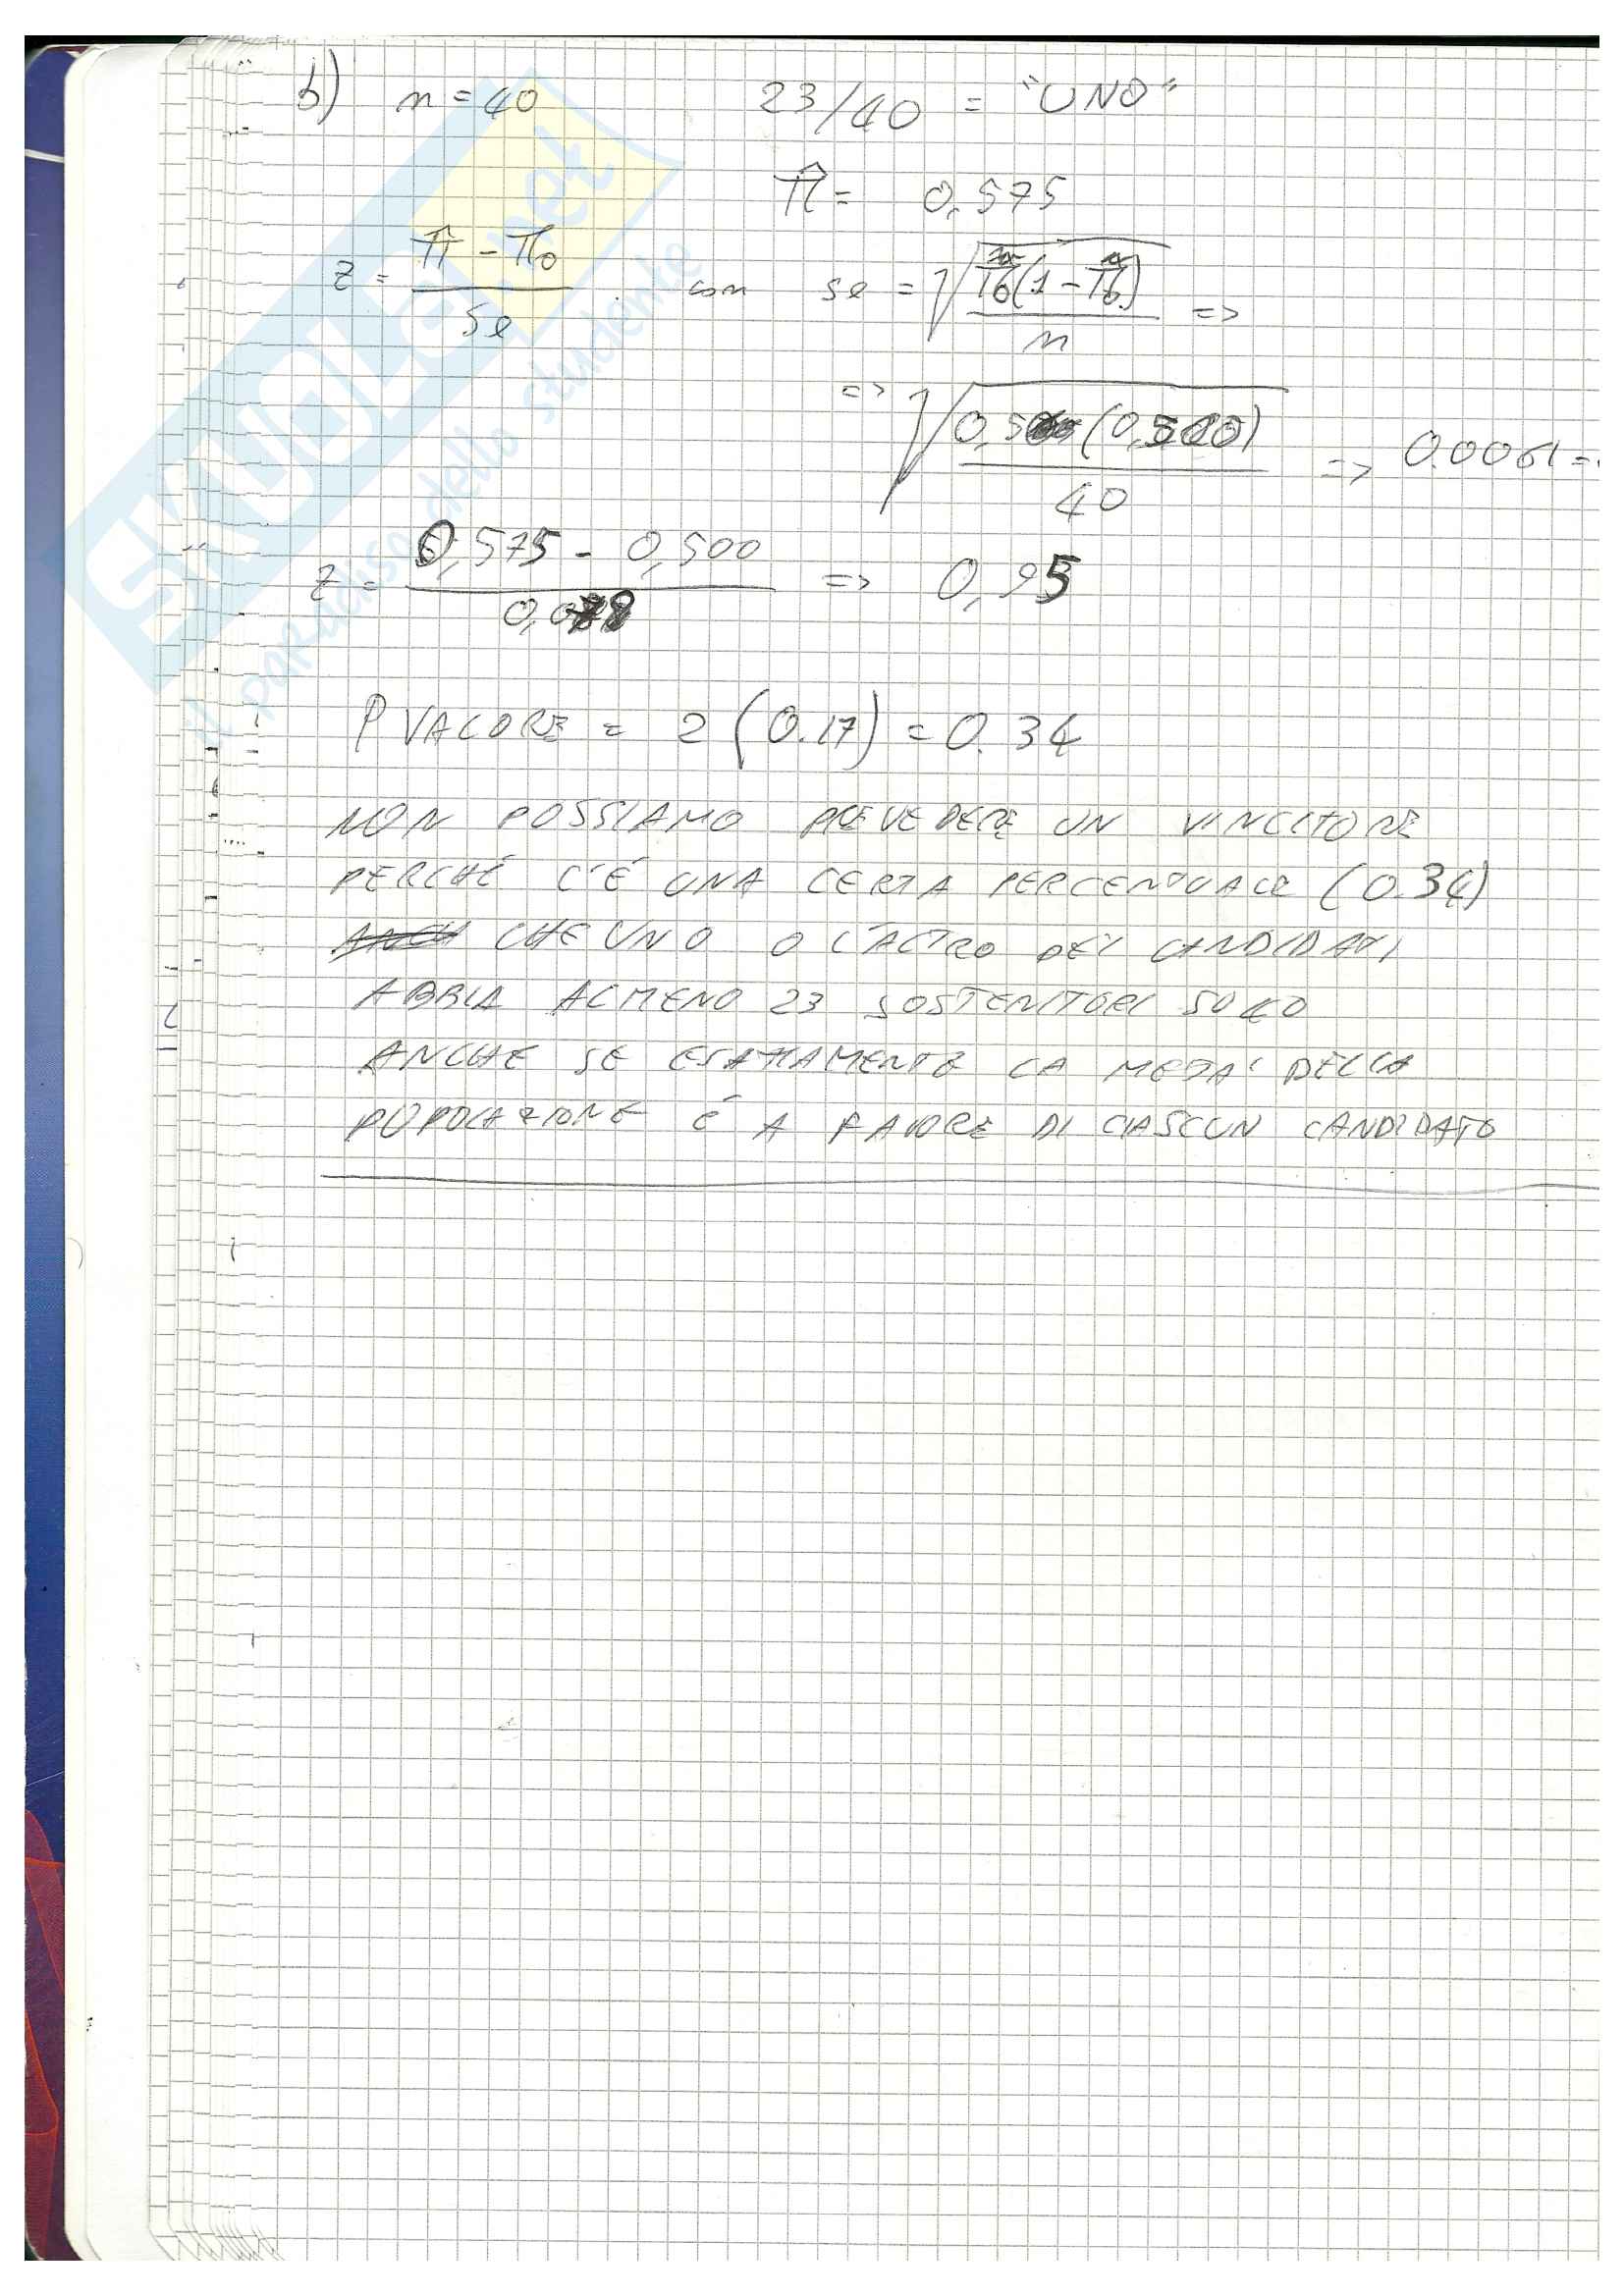 b) n = 40 23/40 = "UNO"
π̂ = 0,575
z = (π̂ - π₀) / se con se = √(π₀(1 - π₀) / n) =>
=> √(0,500 (0,500) / 40) => 0.0061 =
z = (0,575 - 0,500) / 0,079 => 0,95
P VALORE = 2 (0.17) = 0.34
NON POSSIAMO PREVEDERE UN VINCITORE
PERCHÉ C'É UNA CERTA PERCENTUALE (0.34)
CHE UNO O L'ALTRO DEI CANDIDATI
ABBIA ALMENO 23 SOSTENITORI SU 40
ANCHE SE ESATTAMENTE LA METÀ DELLA
POPOLAZIONE É A FAVORE DI CIASCUN CANDIDATO
SKUOLA.net
il paradiso dello studente